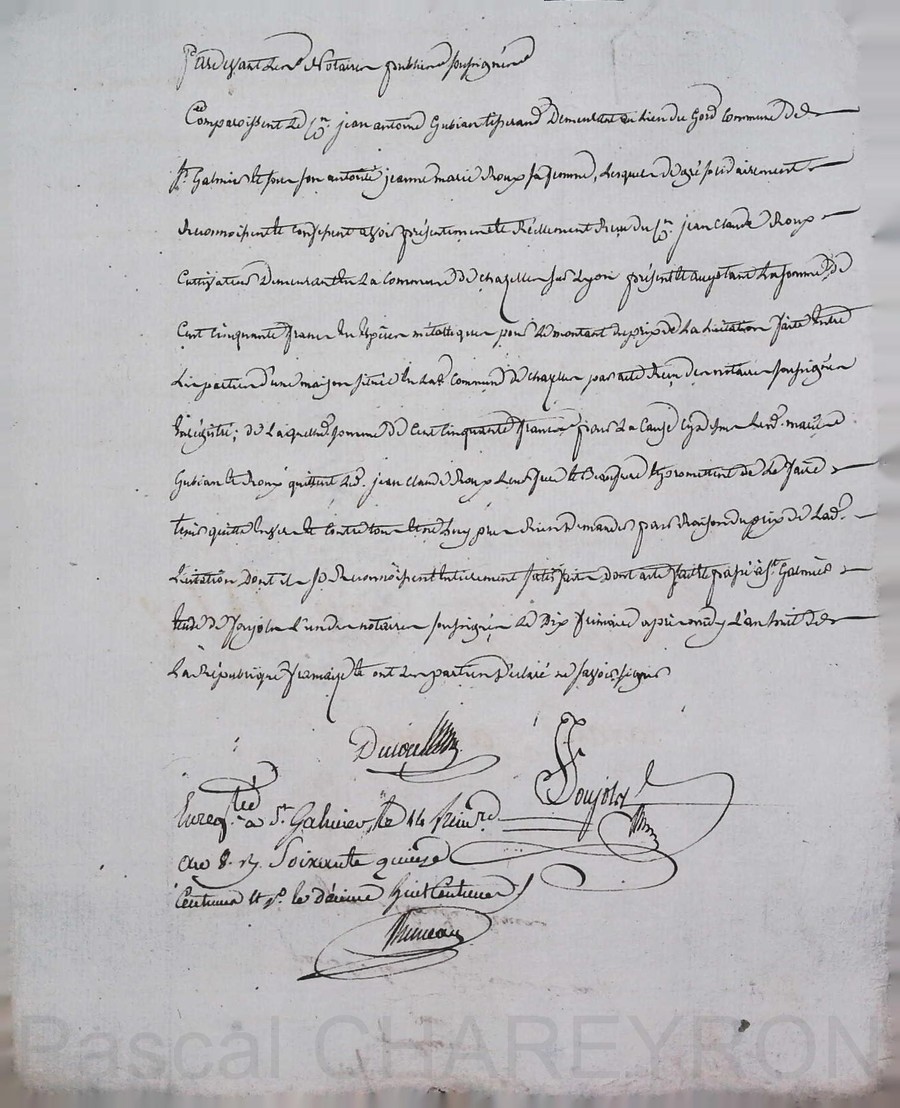 Pardevant les Notaires publics soussignés
Comparoissent le Cen. jean antoine Gubian tisserand Demeurant au lieu du Gord Commune de
St. Galmier et sous son autorité jeanne marie Roux sa femme, lesquels de gré solidairement
Reconnoissent et Confessent avoir présentement et Réellement Reçu du Cen. jean Claude Roux
Cultivateur Demeurant en La Commune de chazelles sur Lyon présent et acceptant La somme de
Cent Cinquante francs En Espèces métalliques pour Le montant du prix de La Licitation faite Entre
Les parties d'une maison située En lad. Commune de chazelles par acte Reçu des notaires soussignés
Enregistré; de Laquelle somme de Cent Cinquante francs pour La Cause Cy dessus Les d. mariés
Gubian et Roux quittent Led. jean Claude Roux Leur frère et Beaufrère et promettent de Le faire
tenir quitte Envers et Contre tous et ne Luy plus Rien Demander pour Raison du prix de Lad.
Licitation dont ils se Reconnoissent Entièrement satisfaits dont acte fait et passé à St. Galmier
Etude de Soujolz L'un des notaires soussignés Le Dix frimaire après midy L'an huit de
La République française et ont Les parties Déclaré ne savoir signer
Soujolz
Enregtré. à St. Galmier, le 14 frimre.
an 8. R. Soixante quinze
Centimes et pr. le décime huit Centimes